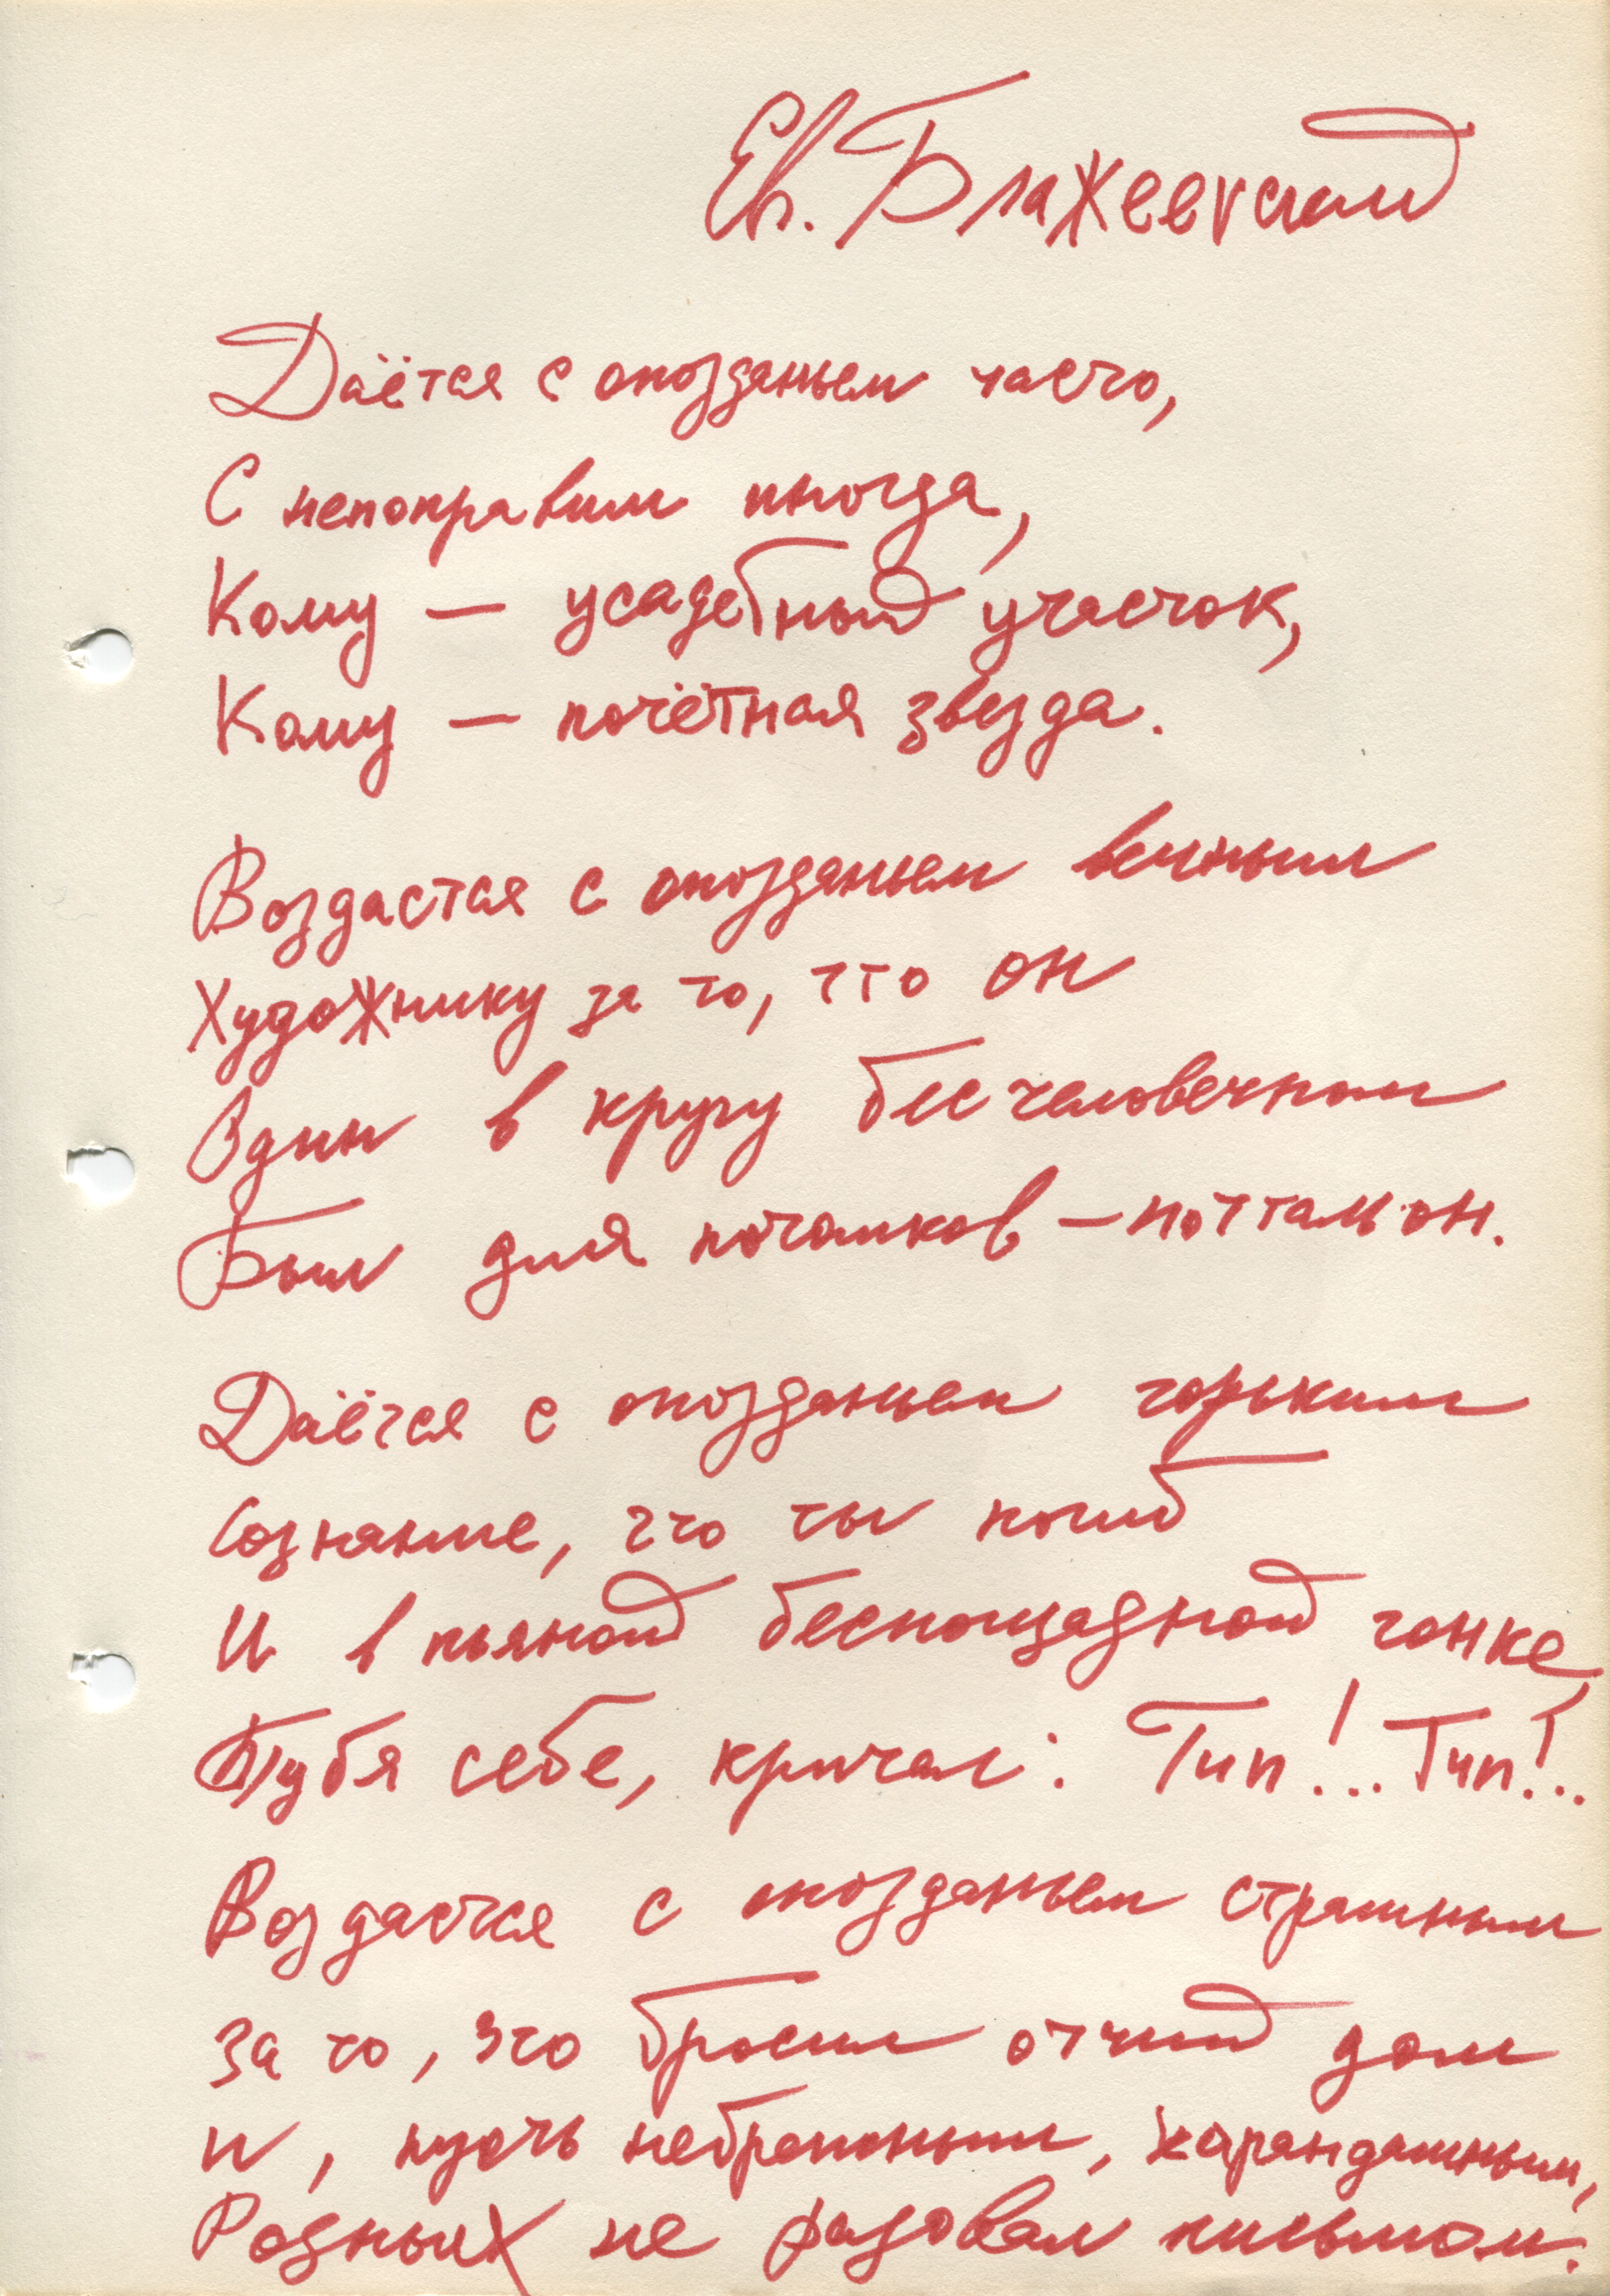 Ев. Блажеевский
Даётся с опозданьем часто,
С непоправим иногда,
Кому — усадебный участок,
Кому — почётная звезда.
Воздастся с опозданьем вечным
Художнику за то, что он
Один в кругу бесчеловечном
Был для потомков — почтальон.
Даётся с опозданьем горьким
Сознание, что ты погиб
И в пьяной беспощадной гонке,
Губя себя, кричал: Гип!.. Гип!..
Воздастся с опозданьем страшным
За то, что бросил отчий дом
и, пусть небрежным, карандашным,
Родных не радовал письмом.